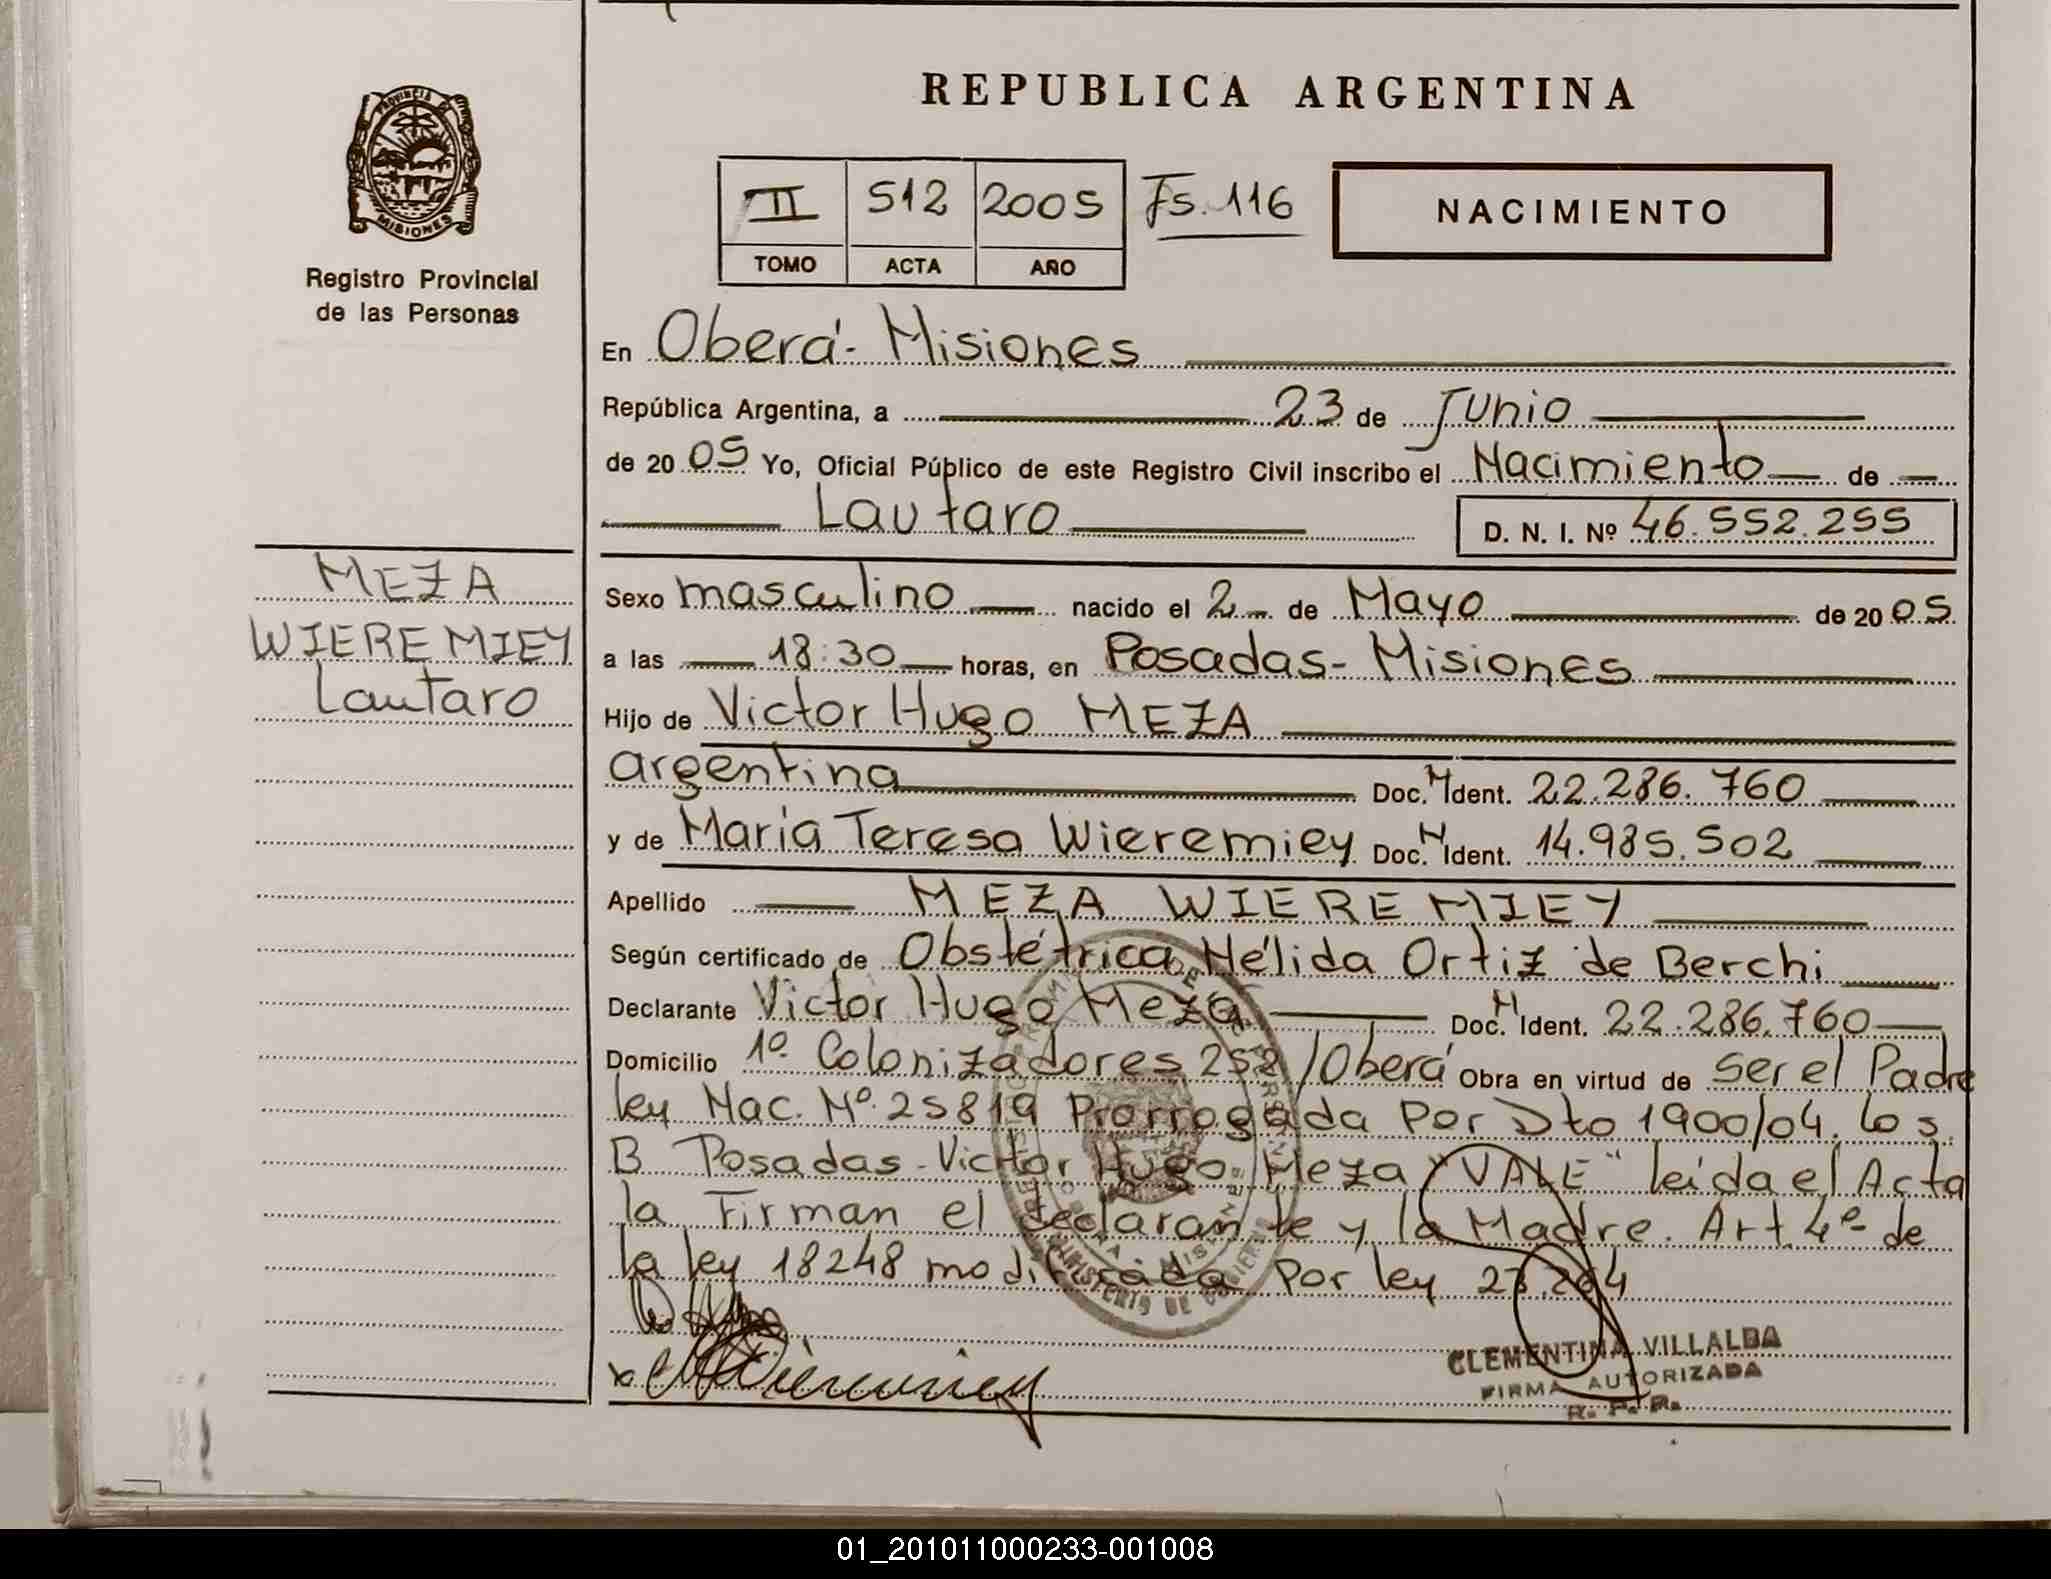 REPUBLICA ARGENTINA
PROVINCIA DE
MISIONES
Registro Provincial
de las Personas
II 512 2005 Fs. 116
TOMO ACTA AÑO
NACIMIENTO
En Oberá- Misiones
República Argentina, a 23 de Junio
de 2005 Yo, Oficial Público de este Registro Civil inscribo el Nacimiento de
Lautaro D. N. I. Nº 46.552.255
MEZA
WIEREMIEY
Lautaro
Sexo masculino nacido el 2 de Mayo de 2005
a las 18:30 horas, en Posadas- Misiones
Hijo de Victor Hugo MEZA
argentina Doc. N Ident. 22.286.760
y de María Teresa Wieremiey Doc. N Ident. 14.985.502
Apellido MEZA WIEREMIEY
Según certificado de Obstétrica Nélida Ortiz de Berchi
Declarante Victor Hugo Meza Doc. N Ident. 22.286.760
Domicilio 1º Colonizadores 252/Oberá Obra en virtud de ser el Padre
ley Nac. Nº 25819 Prorrogada Por Dto 1900/04. los
B Posadas-Victor Hugo Meza "VALE" leída el Acta
la Firman el declarante y la Madre. Art. 4º de
la ley 18248 modificada Por ley 23.264
MINISTERIO DE GOBIERNO
x Wieremiey
CLEMENTINA VILLALBA
FIRMA AUTORIZADA
R. P. P.
01_201011000233-001008